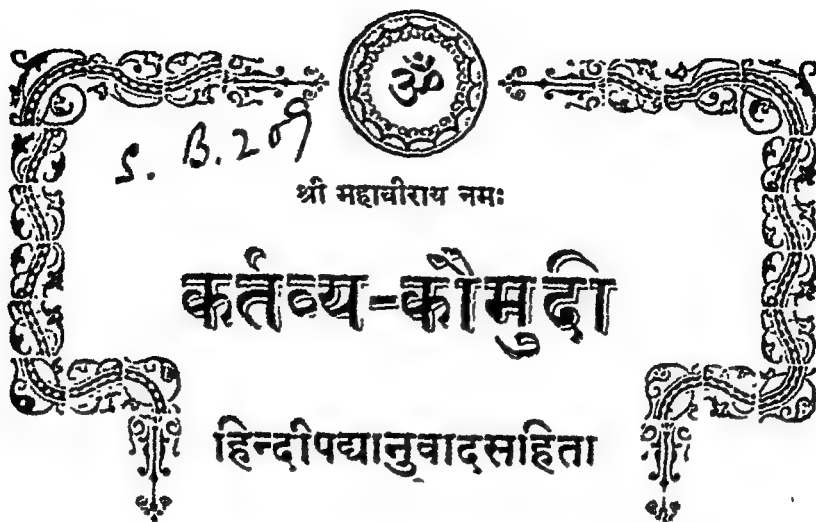 ॐ
S. B. 209
श्री महावीराय नमः
कर्तव्य-कौमुदी
हिन्दीपद्यानुवादसहिता